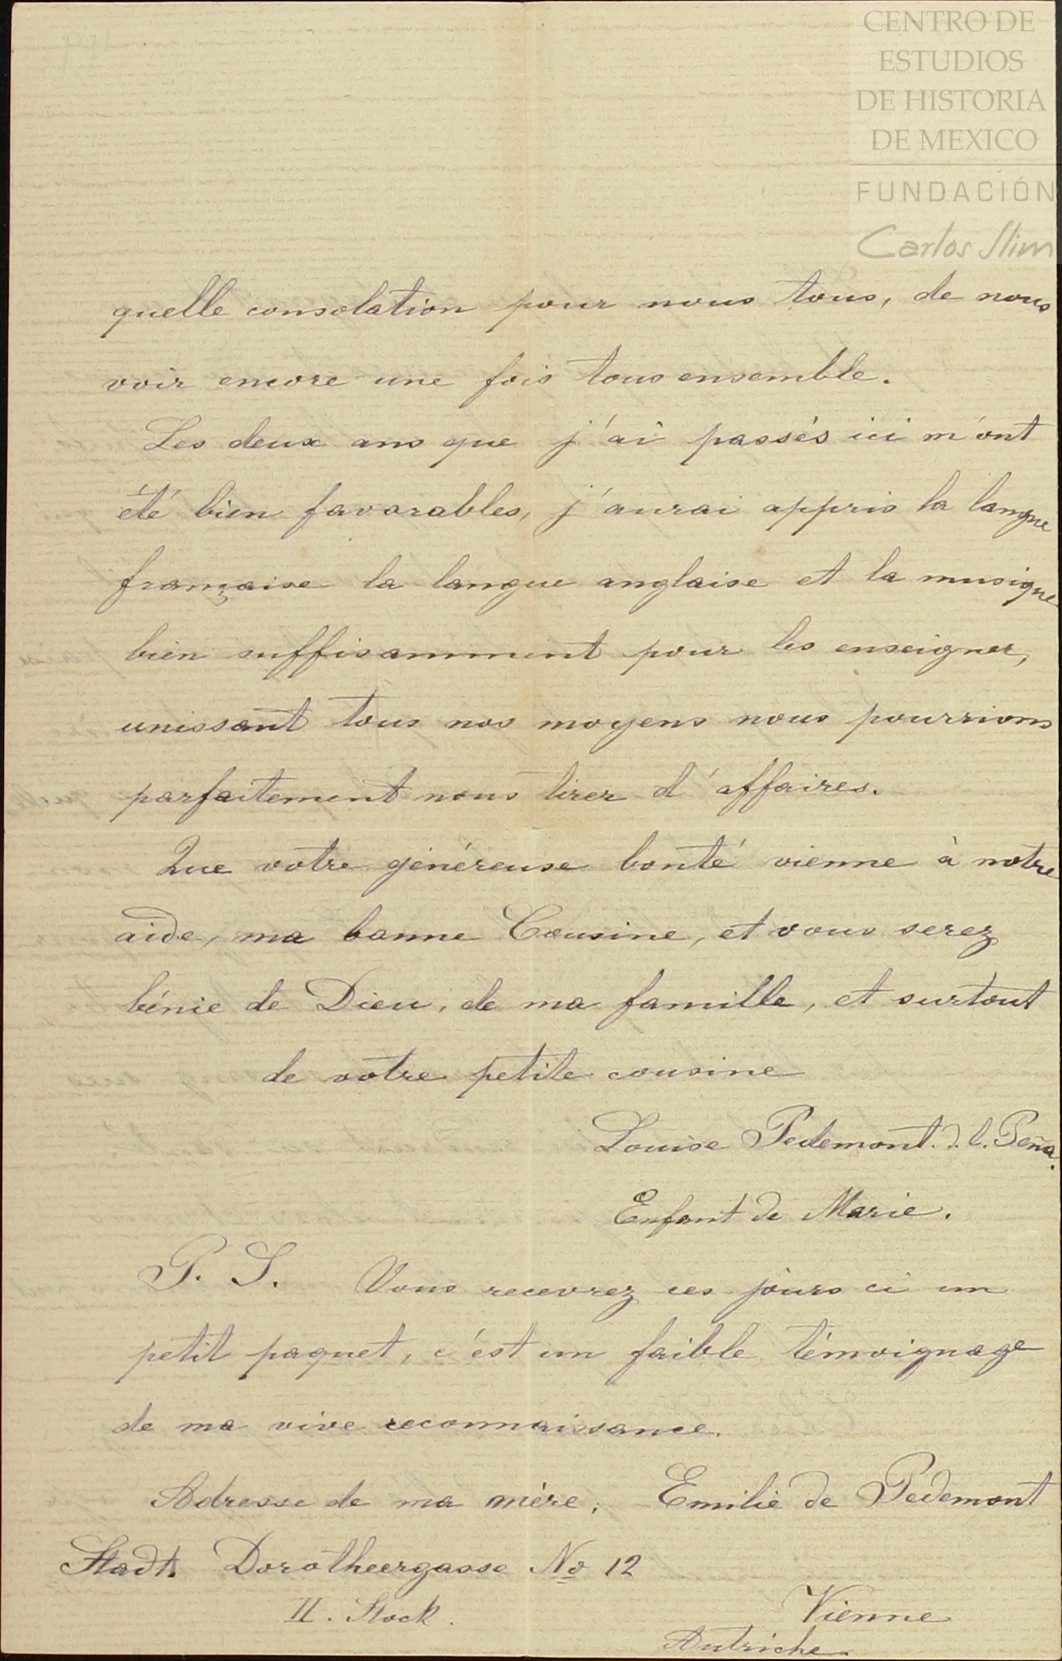 CENTRO DE
ESTUDIOS
DE HISTORIA
DE MEXICO
FUNDACIÓN
Carlos Slim
quelle consolation pour nous tous, de nous
voir encore une fois tous ensemble.
Les deux ans que j'ai passés ici m'ont
été bien favorables, j'aurai appris la langue
française la langue anglaise et la musique
bien suffisamment pour les enseigner,
unissant tous nos moyens nous pourrions
parfaitement nous tirer d'affaires.
Que votre généreuse bonté vienne à notre
aide, ma bonne Cousine, et vous serez
bénie de Dieu, de ma famille, et surtout
de votre petite cousine
Louise Pedemont. d. l. Peña.
Enfant de Marie.
P. S. Vous recevrez ces jours ci un
petit paquet, c'est un faible témoignage
de ma vive reconnaissance.
Adresse de ma mère. Emilie de Pedemont
Stadt. Dorotheergasse No 12
II. Stock.
Vienne
Autriche.